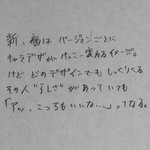 新、描は バージョンごとに
キャラデザが けっこー変わるイメージ。
けど どのデザインでも しっくりくる
その人"らしさ"があって いつも
「アッ、こっちもいいな、、」ってなる。